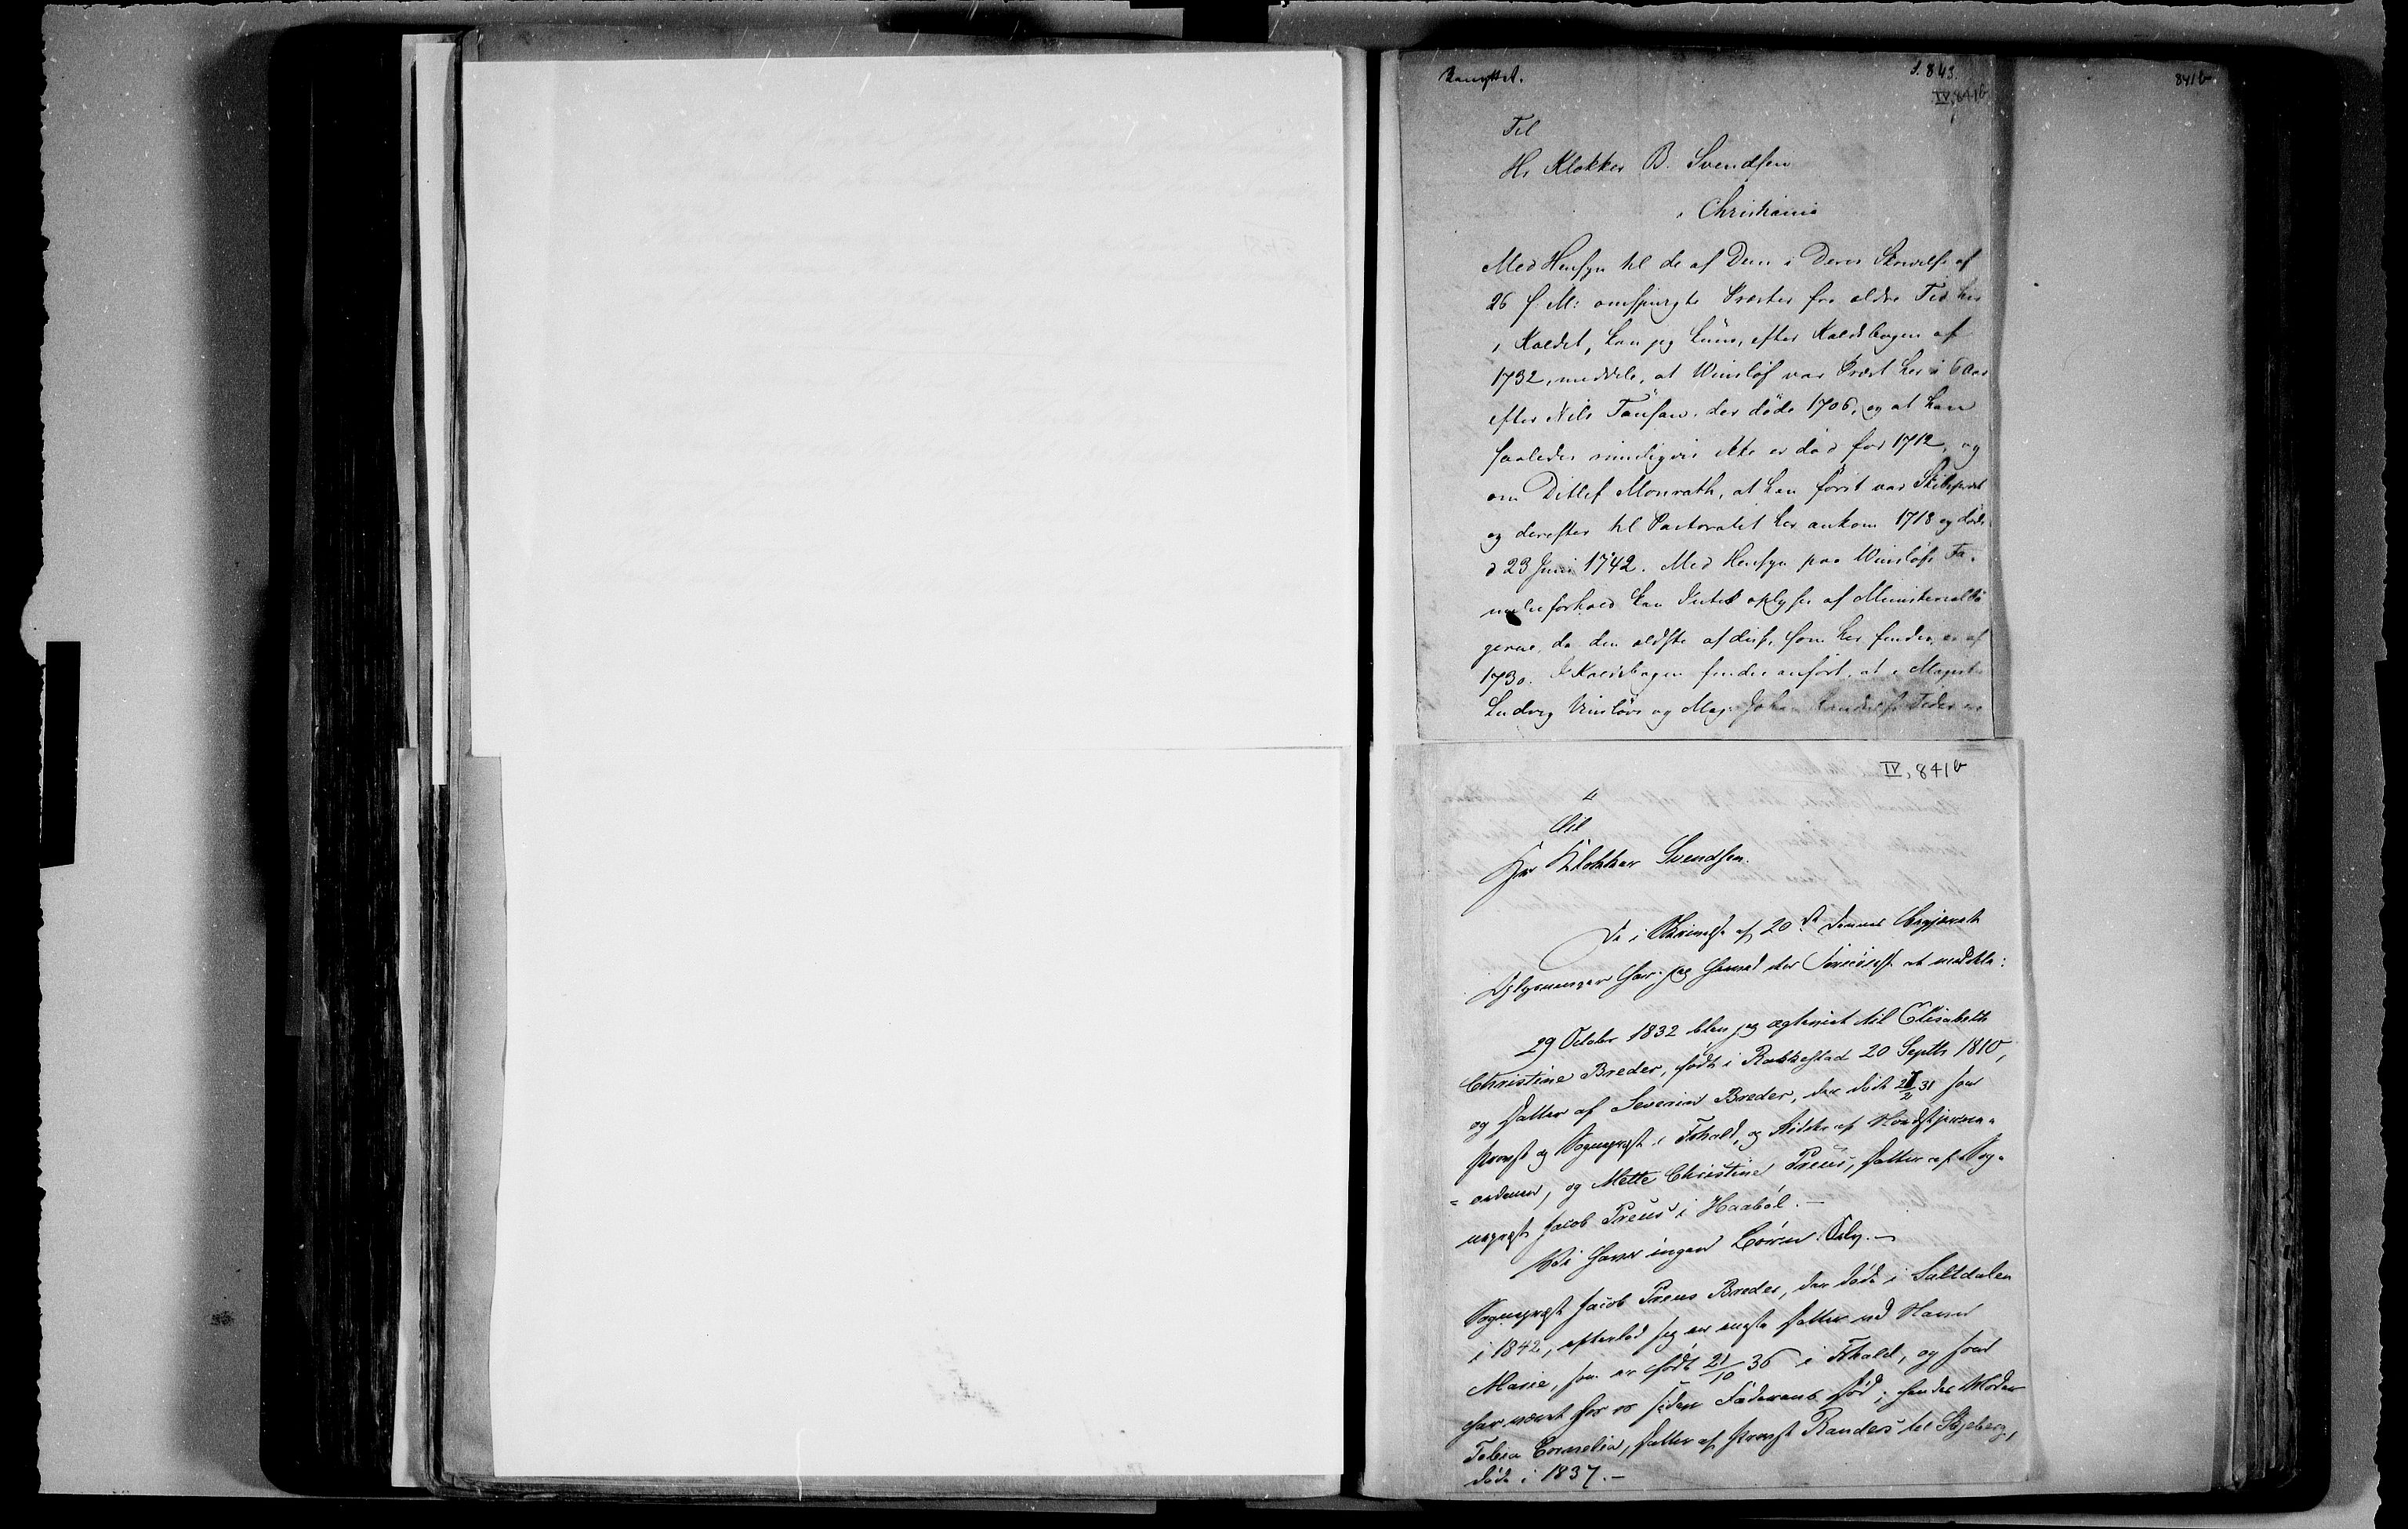 benyttet.
S. 843.
IV, 841b
841b
Til
Hr Klokker B. Svendsen
i Christiania
Med Hensyn til de af Dem i Deres Skrivelse af
26 f. M: omspurgte Præster fra ældre Tid her
i Kaldet, kan jeg kuns, efter Kaldsbogen af
1732, meddele, at Winsløf var Præst her i 6 Aar
efter Nils Tausan, der døde 1706, og at han
saaledes rimeligvis ikke er død før 1712, og
om Ditlef Monrath, at han først var Skibspræst
og derefter til Pastoratet her ankom 1718 og døde
d 23 Juni 1742. Med Hensyn paa Winsløfs Fa-
milieforhold kan Intet oplyses af Ministerialbø
gerne, da den ældste af disse, som her findes, er af
1730. I Kaldsbogen findes anført, at Magister
Ludvig Vinsløvs og Mag. Johan Fader
IV, 841b
Til
Hr Klokker Svendsen.
De i Skrivelse af 20de dennes begjærede
Oplysninger har jeg herved den Fornøielse at meddele:
29 October 1832 blev jeg ægteviet til Elisabeth
Christine Breder, født i Rakkestad 20 Septbr 1810,
og Datter af Severin Breder, der døde 21/2 31 som
Provst og Sognepræst i Fhald, og Ridder af Nordstjerne-
=ordenen, og Mette Christine Preus, Datter af Sog-
nepræst Jacob Preus i Haabøl. —
Vi have ingen Børn. —
Sognepræst Jacob Preus Breder, der døde i Saltdalen
i 1842, efterlod sig en eneste Datter ved Navn
Marie, som er født 21/10 36 i Fhald, og som
har været hos os siden Faderens Død; hendes Moder
Tobea Cornelia, Datter af Provst Randers til Skjeberg,
døde i 1837. —